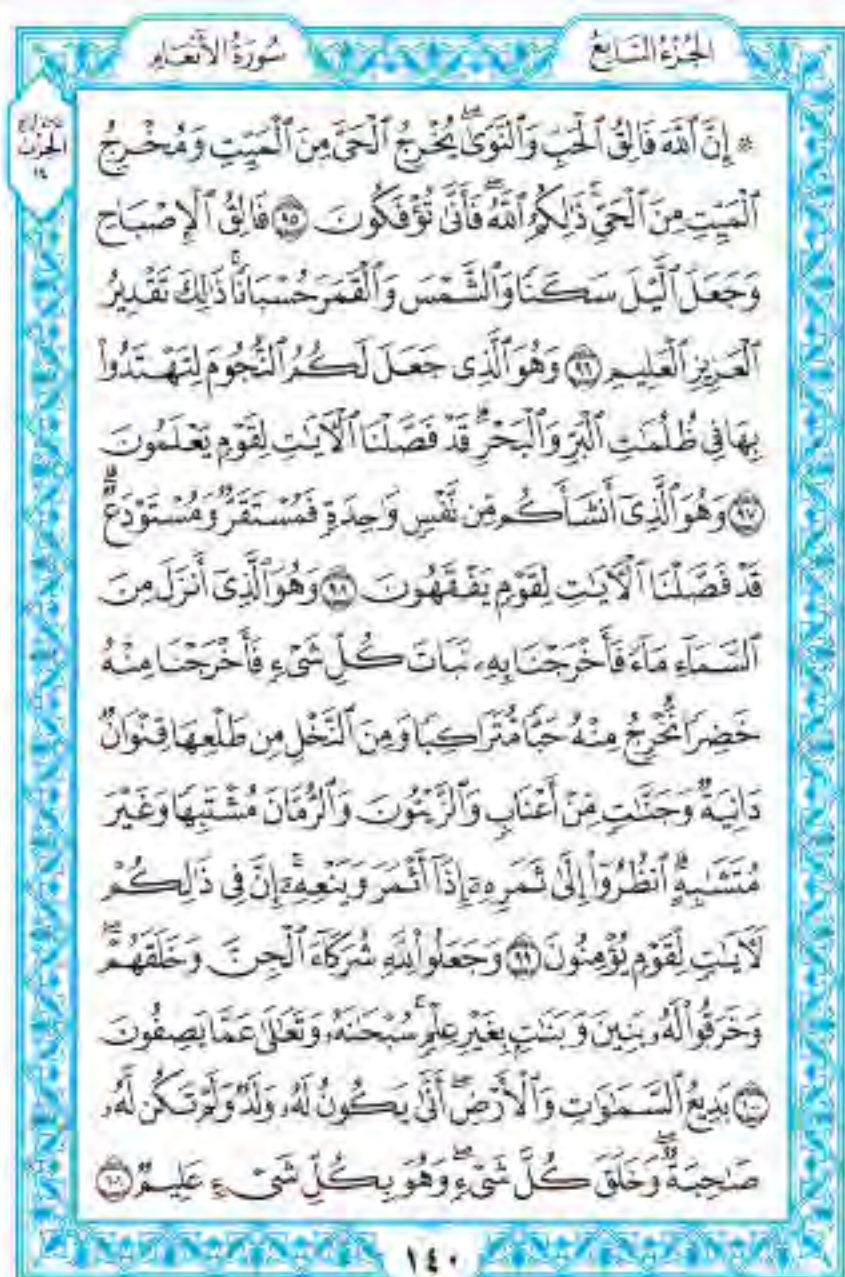 الجُزْءُ السَّابِعُ
سُورَةُ الأَنْعَامِ
الحِزْبُ
١٤
۞ إِنَّ ٱللَّهَ فَالِقُ ٱلْحَبِّ وَٱلنَّوَىٰۖ يُخْرِجُ ٱلْحَىَّ مِنَ ٱلْمَيِّتِ وَمُخْرِجُ
ٱلْمَيِّتِ مِنَ ٱلْحَىِّۚ ذَٰلِكُمُ ٱللَّهُۖ فَأَنَّىٰ تُؤْفَكُونَ ۝٩٥ فَالِقُ ٱلْإِصْبَاحِ
وَجَعَلَ ٱلَّيْلَ سَكَنًا وَٱلشَّمْسَ وَٱلْقَمَرَ حُسْبَانًاۚ ذَٰلِكَ تَقْدِيرُ
ٱلْعَزِيزِ ٱلْعَلِيمِ ۝٩٦ وَهُوَ ٱلَّذِى جَعَلَ لَكُمُ ٱلنُّجُومَ لِتَهْتَدُوا۟
بِهَا فِى ظُلُمَٰتِ ٱلْبَرِّ وَٱلْبَحْرِۗ قَدْ فَصَّلْنَا ٱلْـَٔايَٰتِ لِقَوْمٍ يَعْلَمُونَ
۝٩٧ وَهُوَ ٱلَّذِىٓ أَنشَأَكُم مِّن نَّفْسٍ وَٰحِدَةٍ فَمُسْتَقَرٌّ وَمُسْتَوْدَعٌۗ
قَدْ فَصَّلْنَا ٱلْـَٔايَٰتِ لِقَوْمٍ يَفْقَهُونَ ۝٩٨ وَهُوَ ٱلَّذِىٓ أَنزَلَ مِنَ
ٱلسَّمَآءِ مَآءً فَأَخْرَجْنَا بِهِۦ نَبَاتَ كُلِّ شَىْءٍ فَأَخْرَجْنَا مِنْهُ
خَضِرًا نُّخْرِجُ مِنْهُ حَبًّا مُّتَرَاكِبًا وَمِنَ ٱلنَّخْلِ مِن طَلْعِهَا قِنْوَانٌ
دَانِيَةٌ وَجَنَّٰتٍ مِّنْ أَعْنَابٍ وَٱلزَّيْتُونَ وَٱلرُّمَّانَ مُشْتَبِهًا وَغَيْرَ
مُتَشَٰبِهٍۗ ٱنظُرُوٓا۟ إِلَىٰ ثَمَرِهِۦٓ إِذَآ أَثْمَرَ وَيَنْعِهِۦٓۚ إِنَّ فِى ذَٰلِكُمْ
لَـَٔايَٰتٍ لِّقَوْمٍ يُؤْمِنُونَ ۝٩٩ وَجَعَلُوا۟ لِلَّهِ شُرَكَآءَ ٱلْجِنَّ وَخَلَقَهُمْۖ
وَخَرَقُوا۟ لَهُۥ بَنِينَ وَبَنَٰتٍۭ بِغَيْرِ عِلْمٍۚ سُبْحَٰنَهُۥ وَتَعَٰلَىٰ عَمَّا يَصِفُونَ
۝١٠٠ بَدِيعُ ٱلسَّمَٰوَٰتِ وَٱلْأَرْضِۖ أَنَّىٰ يَكُونُ لَهُۥ وَلَدٌ وَلَمْ تَكُن لَّهُۥ
صَٰحِبَةٌۖ وَخَلَقَ كُلَّ شَىْءٍۖ وَهُوَ بِكُلِّ شَىْءٍ عَلِيمٌ ۝١٠١
١٤٠